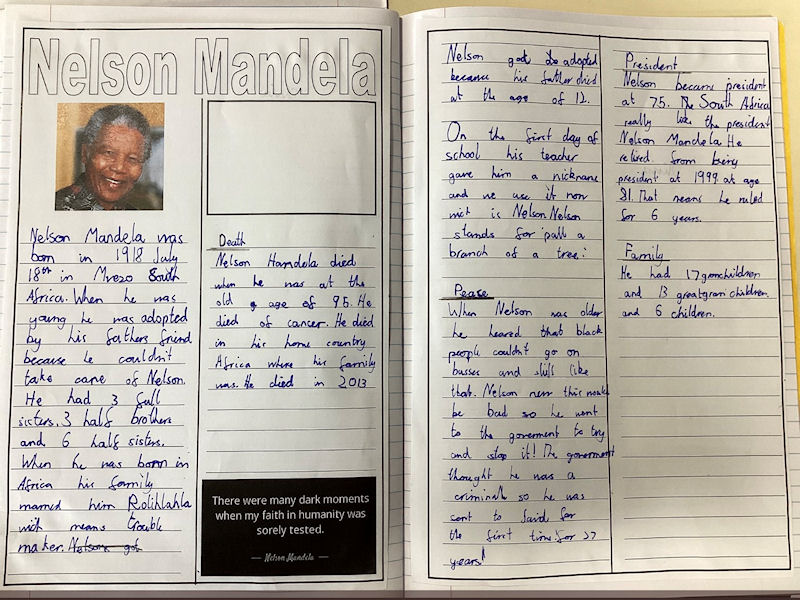 Nelson Mandela
Nelson Mandela was
born in 1918 July
18th in Mvezo South
Africa. When he was
young he was adopted
by his fathers friend
because he couldn't
take care of Nelson.
He had 3 full
sisters, 3 half brothers
and 6 half sisters.
When he was born in
Africa his family
named him Rolihlahla
wich means trouble
maker. Nelson got
Death
Nelson Mandela died
when he was at the
old age of 95. He
died of cancer. He died
in his home country
Africa where his family
was. He died in 2013
There were many dark moments
when my faith in humanity was
sorely tested.
— Nelson Mandela —
Nelson got adopted
because his father died
at the age of 12.
On the first day of
school his teacher
gave him a nickname
and we use it now
wich is Nelson. Nelson
stands for 'pull a
branch of a tree'.
Pease
When Nelson was older
he heared that black
people couldn't go on
busses and stuff like
that. Nelson new this would
be bad so he went
to the goverment to try
and stop it! The goverment
thought he was a
criminal so he was
sent to for
the first time for 27
years!
President
Nelson became president
at 75. The South Africa
really like the president
Nelson Mandela He
retired from being
president at 1999 at age
81. That means he ruled
for 6 years.
Family
He had 17 granchildren
and 13 greatgranchildren.
and 6 children.